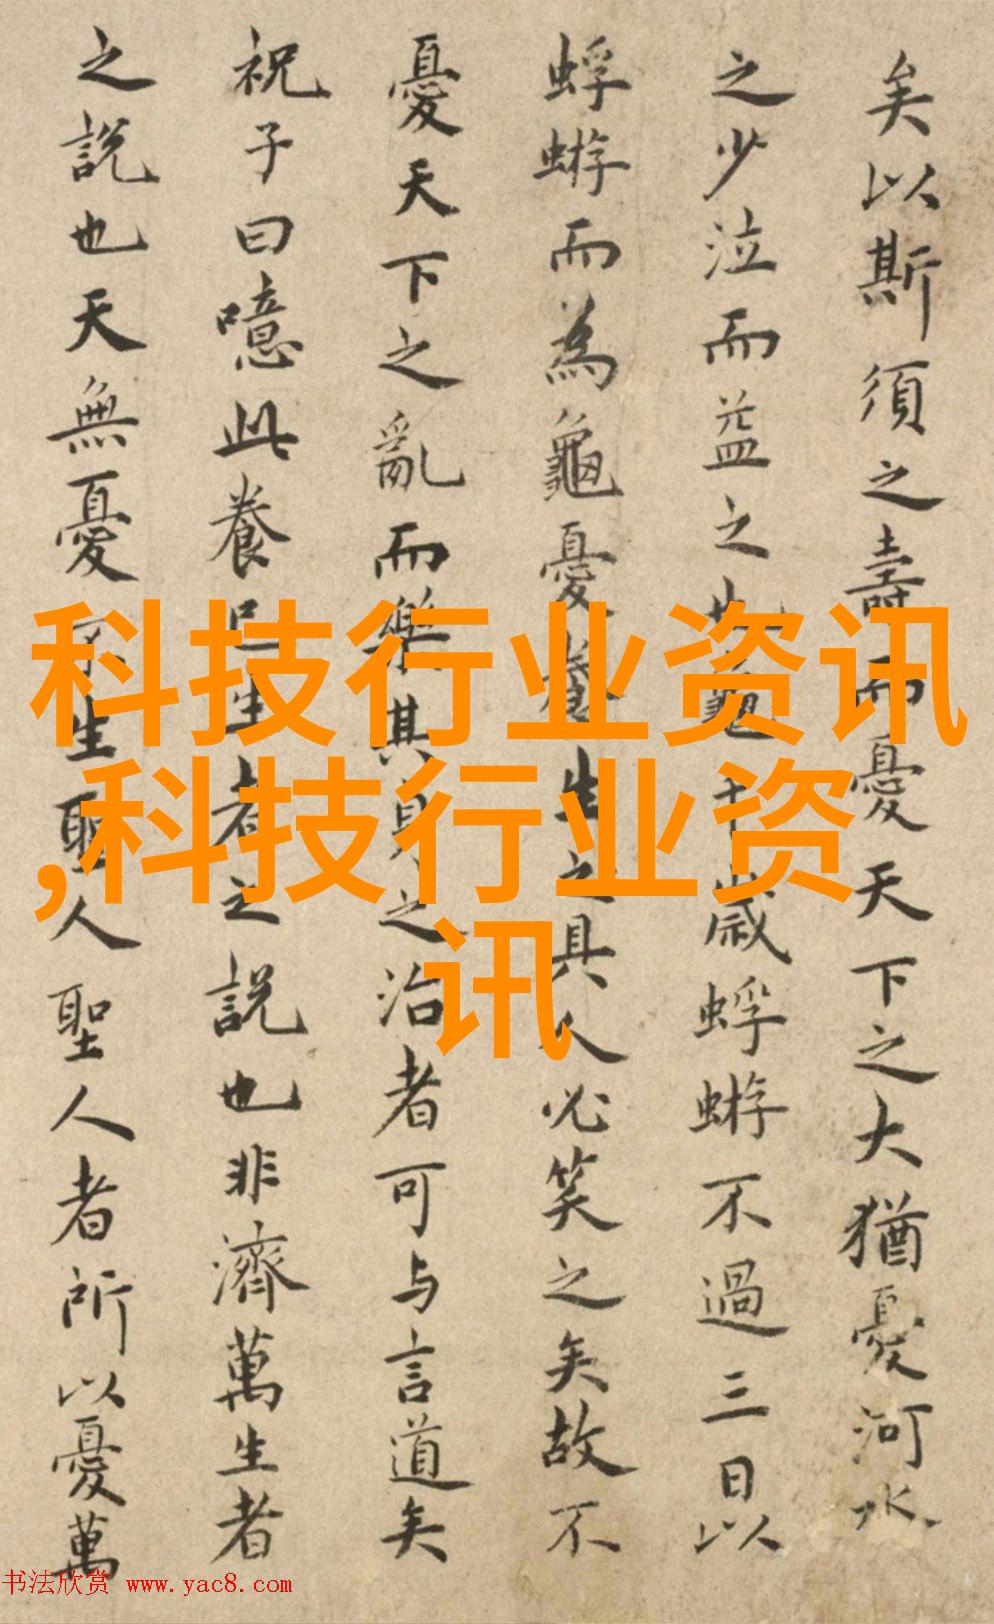 矣以斯須之壽而憂天下之大猶憂河水
之少泣而益之也龜千歲蜉蝣不過三日以
蜉蝣而為龜憂養生之具人必笑之矣故不
憂天下之亂而樂其身之治者可与言道矣
祝子曰噫此養生者之說也非濟萬生者
之說也天無憂生聖人聖人者所以憂萬
科技行业资讯
,科技行业资
讯
书法欣赏 www.yac8.com